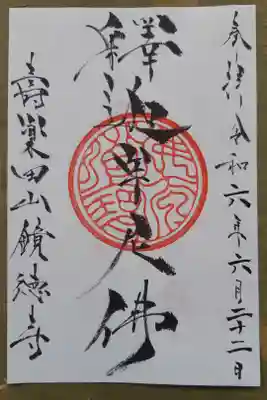 奉拝 令和六年六月二十二日
釋迦牟尼佛
田山鏡徳寺